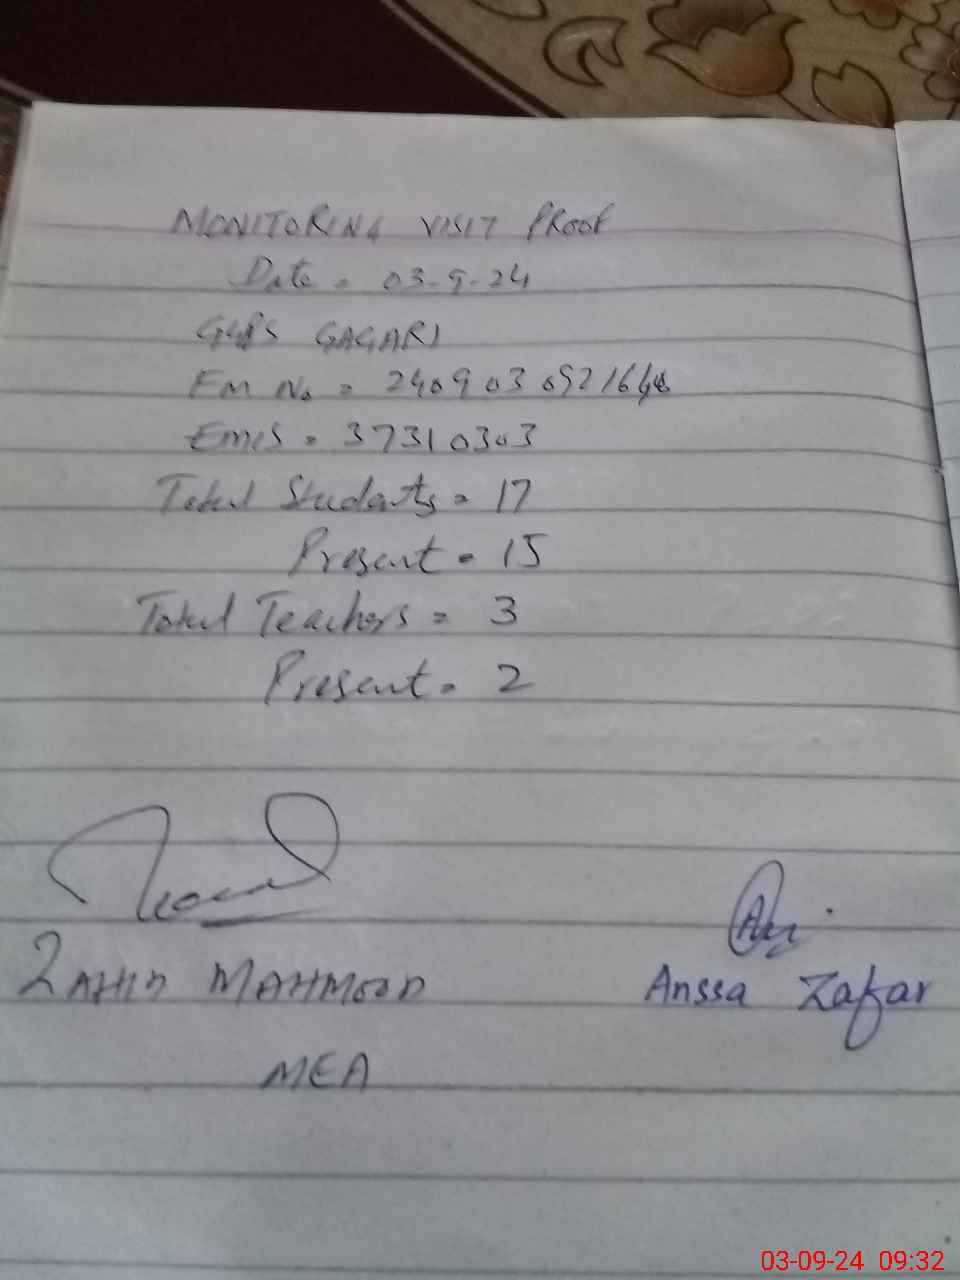 MONITORING VISIT PROOF
Date = 03-9-24
GGPS GAGARI
Em No =
Emis = 37310303
Total Students = 17
Present = 15
Total Teachers = 3
Present = 2
ZAHID MAHMOOD
Anssa Zafar
MEA
03-09-24 09:32